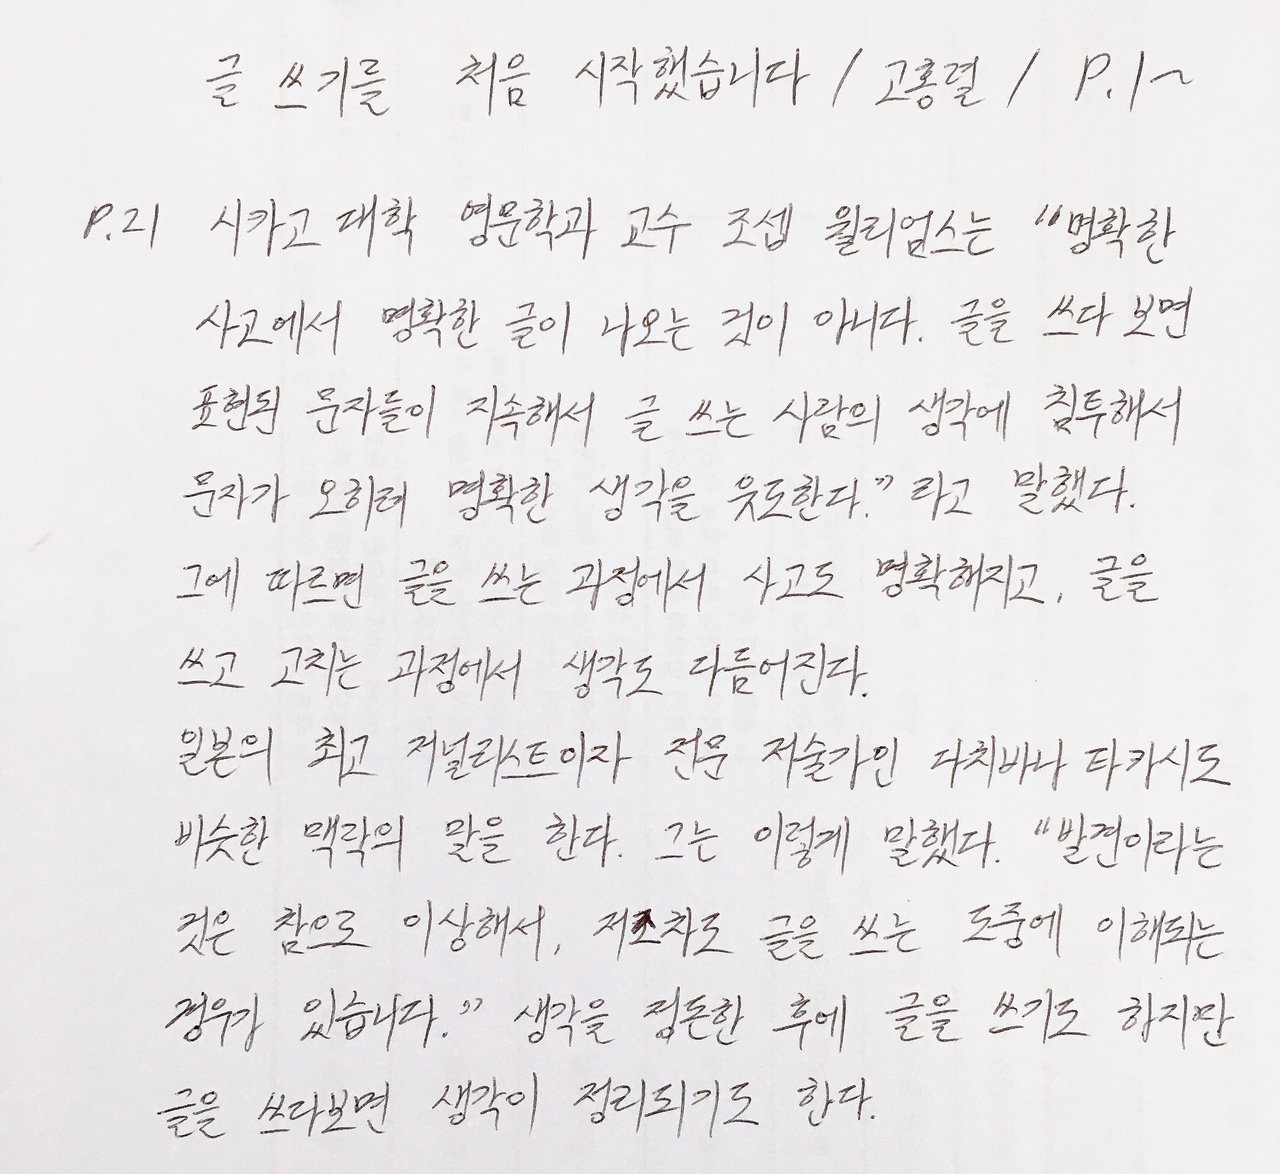 글 쓰기를 처음 시작했습니다 / 고홍렬 / P.1~
P.21 시카고 대학 영문학과 교수 조셉 윌리엄스는 “명확한
사고에서 명확한 글이 나오는 것이 아니다. 글을 쓰다 보면
표현된 문자들이 지속해서 글 쓰는 사람의 생각에 침투해서
문자가 오히려 명확한 생각을 유도한다.” 라고 말했다.
그에 따르면 글을 쓰는 과정에서 사고도 명확해지고, 글을
쓰고 고치는 과정에서 생각도 다듬어진다.
일본의 최고 저널리스트이자 전문 저술가인 다치바나 타카시도
비슷한 맥락의 말을 한다. 그는 이렇게 말했다. “발견이라는
것은 참으로 이상해서, 저조차도 글을 쓰는 도중에 이해되는
경우가 있습니다.” 생각을 정돈한 후에 글을 쓰기도 하지만
글을 쓰다보면 생각이 정리되기도 한다.